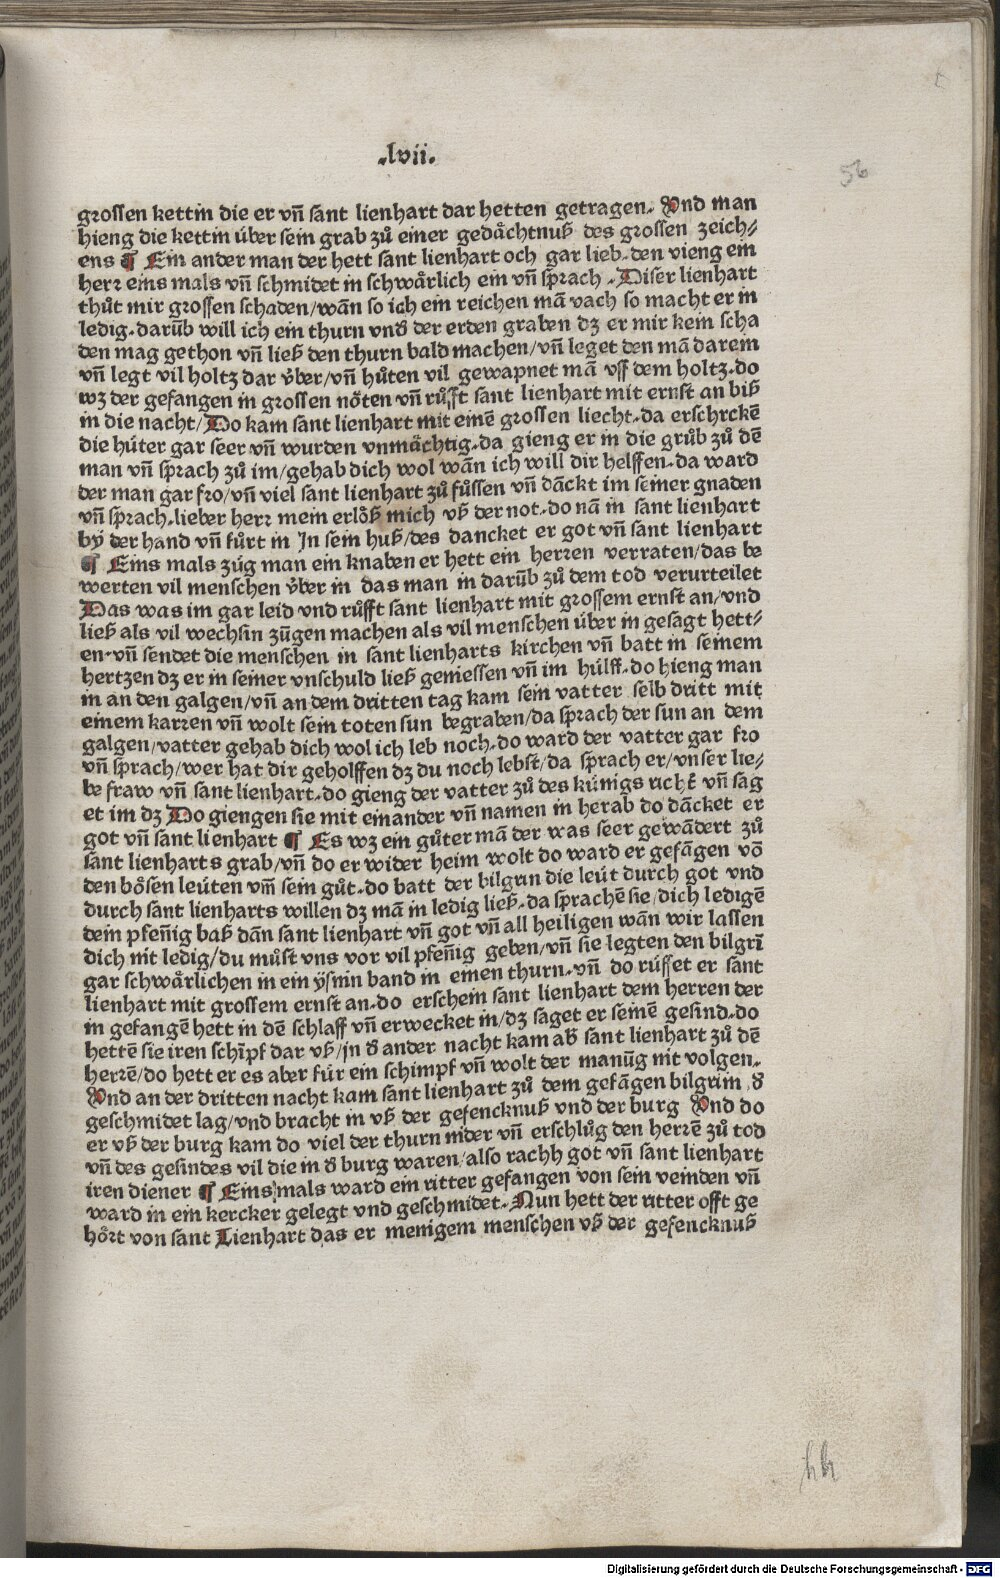 .lvii.
56
grossen kettin die er vn̄ sant lienhart dar hetten getragen. Vnd man
hieng die kettin über sein grab zů einer gedächtnuß des grossen zeich⸗
ens ¶ Ein ander man der hett sant lienhart och gar lieb.den vieng ein
herr eins mals vn̄ schmidet in schwärlich ein vn̄ sprach .Diser lienhart
thůt mir grossen schaden/wān so ich ein reichen mā vach so macht er in
ledig.darūb will ich ein thurn vnd̄ der erden graben dz er mir kein scha
den mag gethon vn̄ ließ den thurn bald machen/vn̄ leget den mā darein
vn̄ legt vil holtz dar v̈ber/vn̄ hůten vil gewapnet mā vff dem holtz.do
wz der gefangen in grossen nöten vn̄ růfft sant lienhart mit ernst an biß
in die nacht/Do kam sant lienhart mit einē grossen liecht.da erschrckē
die hüter gar seer vn̄ wurden vnmächtig.da gieng er in die grůb zů dē
man vn̄ sprach zů im/gehab dich wol wān ich will dir helffen.da ward
der man gar fro/vn̄ viel sant lienhart zů fůssen vn̄ dāckt im seiner gnaden
vn̄ sprach.lieber herr mein erlöß mich vß der not.do nā in sant lienhart
bÿ der hand vn̄ fůrt in In sein huß/des dancket er got vn̄ sant lienhart
¶ Eins mals züg man ein knaben er hett ein herren verraten/das be
werten vil menschen v̈ber in das man in darūb zů dem tod verurteilet
Das was im gar leid vnd růfft sant lienhart mit grossem ernst an/vnd
ließ als vil wechsin zügen machen als vil menschen über in gesagt hett⸗
en.vn̄ sendet die menschen in sant lienharts kirchen vn̄ batt in seinem
hertzen dz er in seiner vnschuld ließ geniessen vn̄ im hülff.do hieng man
in an den galgen/vn̄ an dem dritten tag kam sein vatter selb dritt mit
einem karren vn̄ wolt sein toten sun begraben/da sprach der sun an dem
galgen/vatter gehab dich wol ich leb noch.do ward der vatter gar fro
vn̄ sprach/wer hat dir geholffen dz du noch lebst/da sprach er/vnser lie⸗
be fraw vn̄ sant lienhart.do gieng der vatter zů des künigs richt̄ vn̄ sag
et im dz Do giengen sie mit einander vn̄ namen in herab do dācket er
got vn̄ sant lienhart ¶ Es wz ein gůter mā der was seer gewādert zů
sant lienharts grab/vn̄ do er wider heim wolt do ward er gefāgen vō
den bösen leüten vm̄ sein gůt.do batt der bilgrin die leüt durch got vnd
durch sant lienharts willen dz mā in ledig ließ.da sprachē sie/dich ledigē
dein pfen̄ig baß dān sant lienhart vn̄ got vn̄ all heiligen wān wir lassen
dich nit ledig/du můst vns vor vil pfen̄ig geben/vn̄ sie legten den bilgrī
gar schwärlichen in ein ÿsnin band in einen thurn.vn̄ do růffet er sant
lienhart mit grossem ernst an.do erschein sant lienhart dem herren der
in gefangē hett in dē schlaff vn̄ erwecket in/dz saget er seinē gesind.do
hettē sie iren schīpf dar vß/in d̄ ander nacht kam ab̄ sant lienhart zů dē
herrē/do hett er es aber für ein schimpf vn̄ wolt der manūg nit volgen.
Vnd an der dritten nacht kam sant lienhart zů dem gefāgen bilgrim d̄
geschmidet lag/vnd bracht in vß der gefencknuß vnd der burg Vnd do
er vß der burg kam do viel der thurn nider vn̄ erschlůg den herrē zů tod
vn̄ des gesindes vil die in d̄ burg waren/also rachh got vn̄ sant lienhart
iren diener ¶ Eins mals ward ein ritter gefangen von sein veinden vn̄
ward in ein kercker gelegt vnd geschmidet.Nun hett der ritter offt ge
hört von sant Lienhart das er menigem menschen vß der gefencknuß
Digitalisierung gefördert durch die Deutsche Forschungsgemeinschaft - DFG